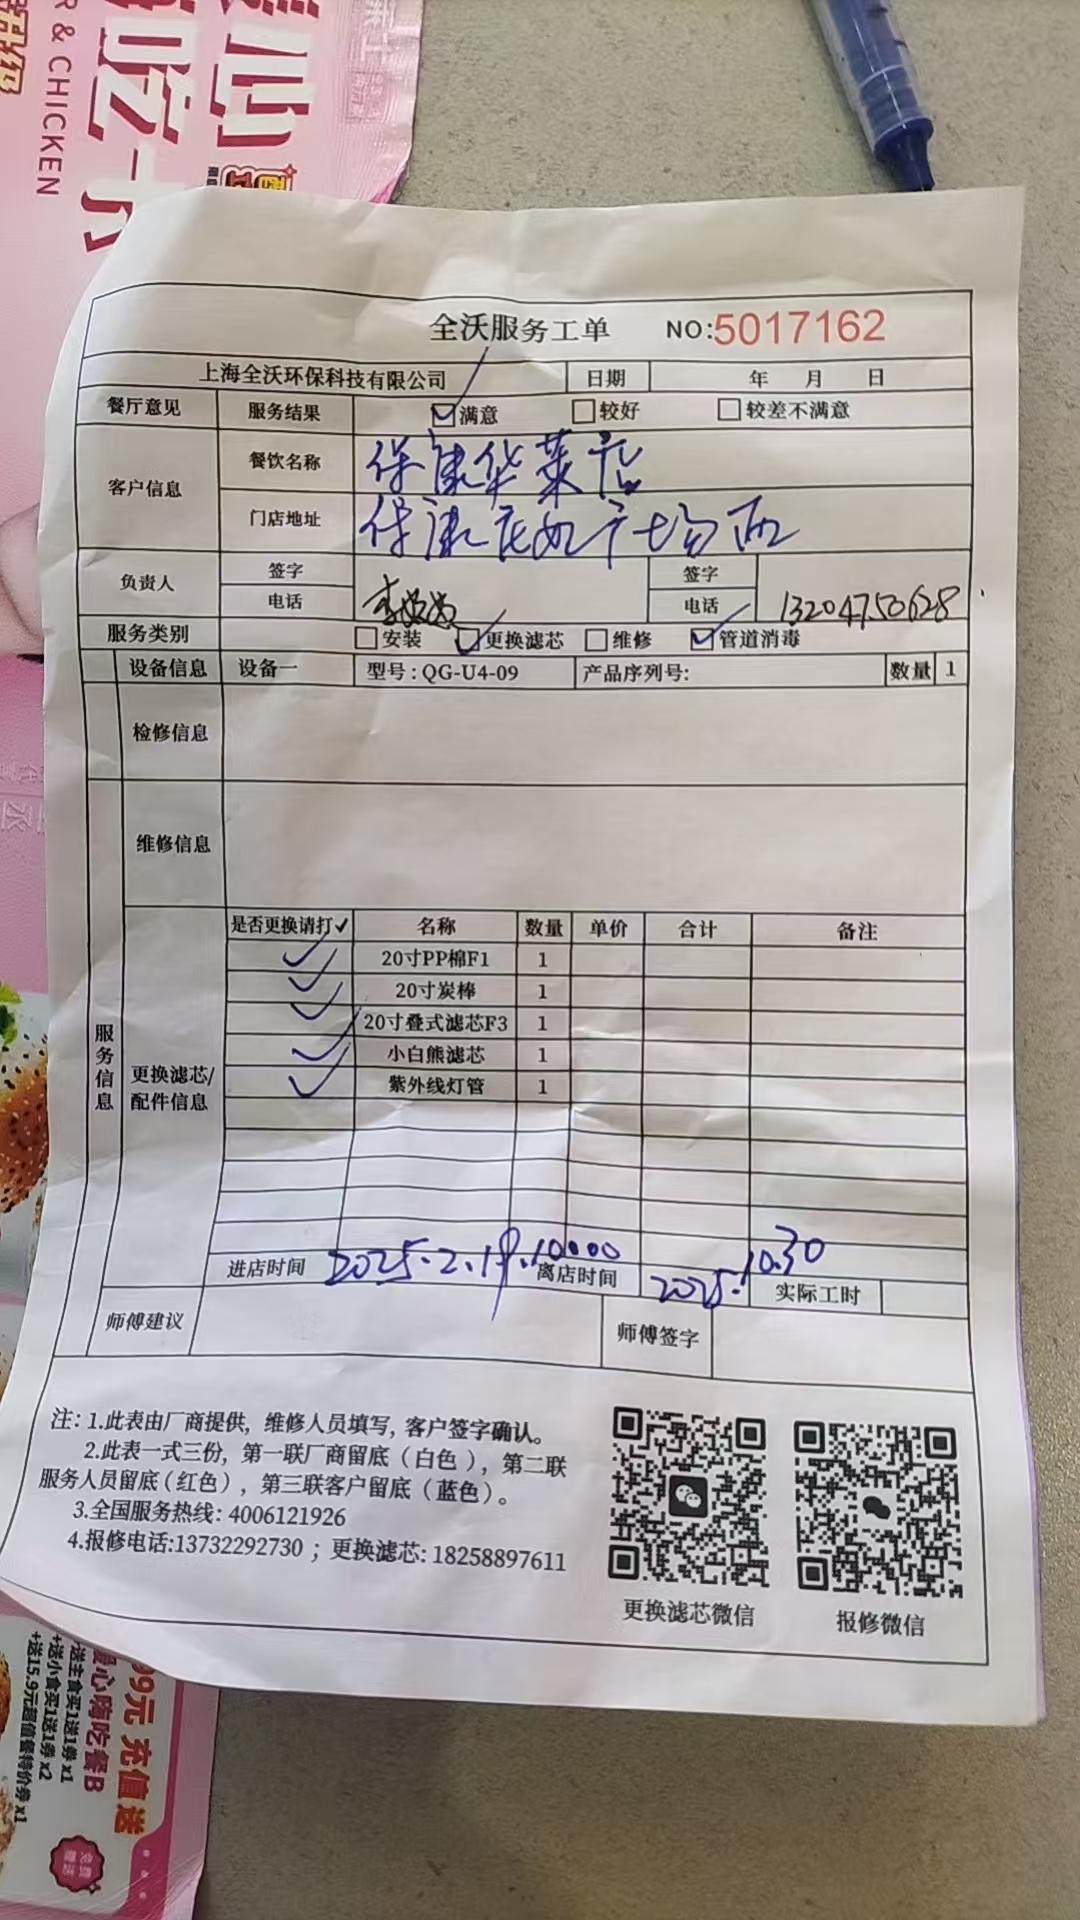 & CHICKEN
心
吃
全沃服务工单 NO:5017162
上海全沃环保科技有限公司 日期 年 月 日
餐厅意见 服务结果 满意 较好 较差不满意
客户信息 餐饮名称 保康华莱店
门店地址 保康 广场西
负责人 签字 签字
电话 电话 13204750628
服务类别 安装 更换滤芯 维修 管道消毒
设备信息 设备一 型号: QG-U4-09 产品序列号: 数量 1
检修信息
维修信息
服务信息
更换滤芯/配件信息
是否更换请打✓ 名称 数量 单价 合计 备注
✓ 20寸PP棉F1 1
✓ 20寸炭棒 1
✓ 20寸叠式滤芯F3 1
✓ 小白熊滤芯 1
✓ 紫外线灯管 1
进店时间 2025.2.19.10:00 离店时间 2025. 10.30 实际工时
师傅建议 师傅签字
注: 1.此表由厂商提供, 维修人员填写, 客户签字确认。
2.此表一式三份, 第一联厂商留底 (白色), 第二联
服务人员留底 (红色), 第三联客户留底 (蓝色)。
3.全国服务热线: 4006121926
4.报修电话:13732292730 ; 更换滤芯: 18258897611
更换滤芯微信 报修微信
99元 充值 送
暖心嗨吃餐B
+送主食买1送1券 x1
+送小食买1送1券 x2
+送15.9元超值餐特价券 x1
免费赠送